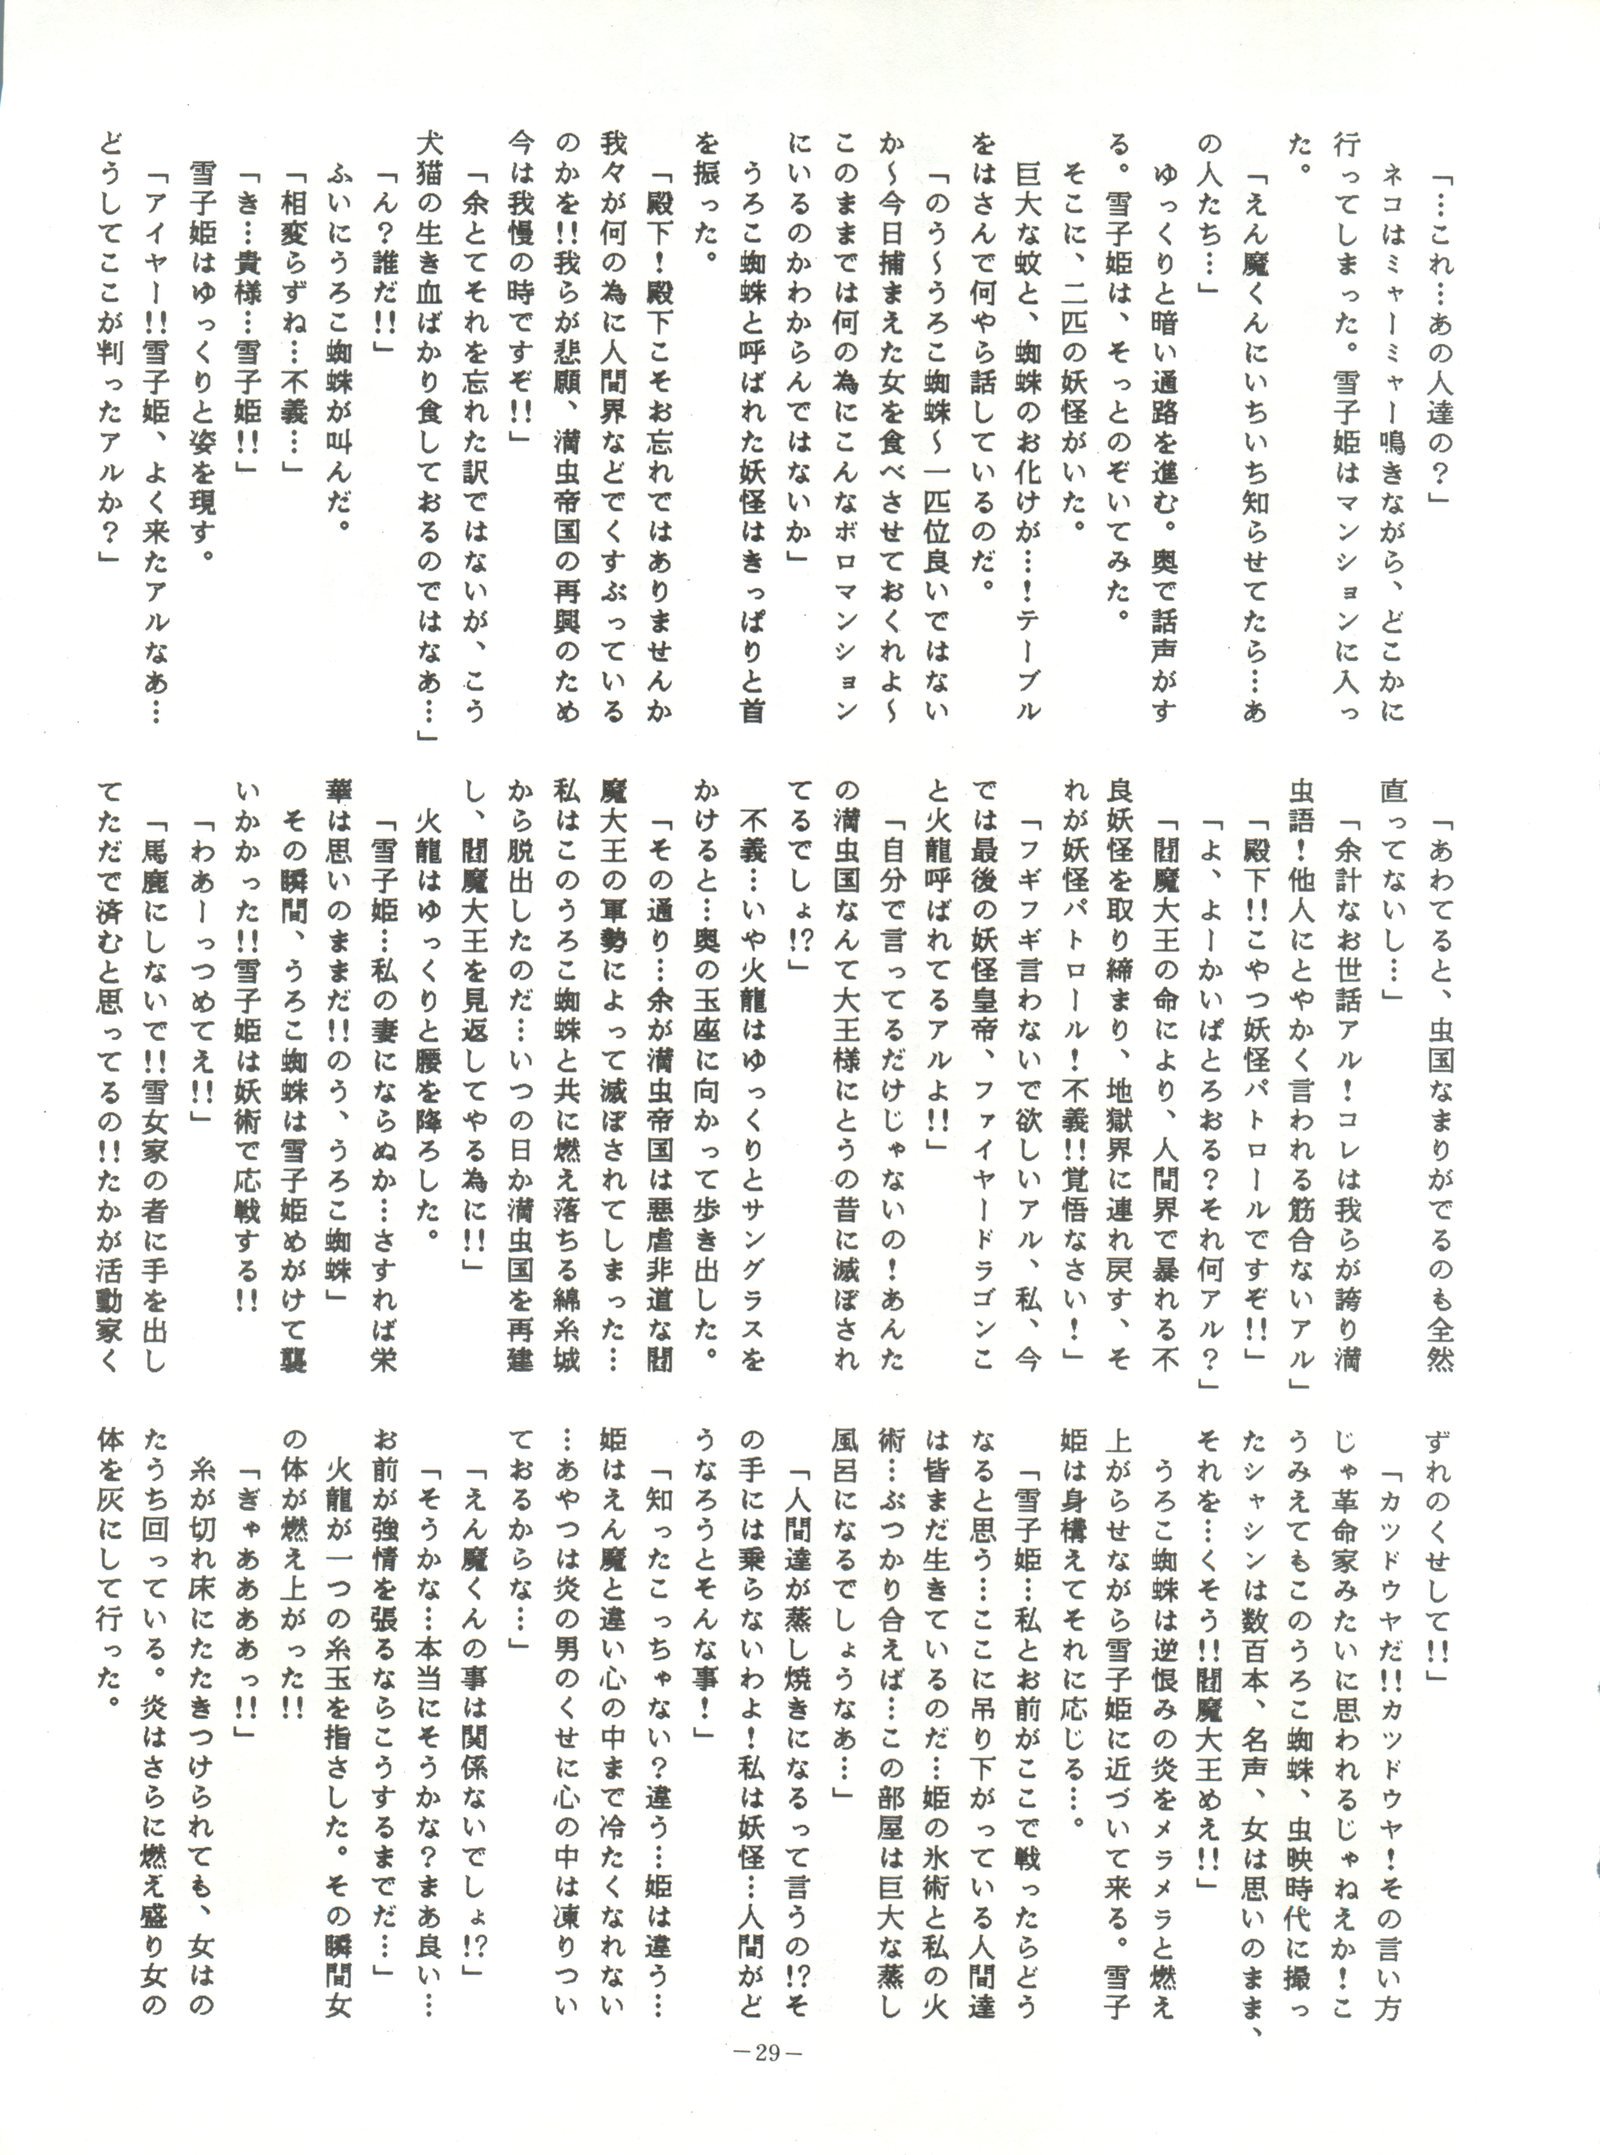 「…これ…あの人達の？」
　ネコはミャーミャー鳴きながら、どこかに
行ってしまった。雪子姫はマンションに入っ
た。
「えん魔くんにいちいち知らせてたら…あ
の人たち…」
　ゆっくりと暗い通路を進む。奥で話声がす
る。雪子姫は、そっとのぞいてみた。
　そこに、二匹の妖怪がいた。
　巨大な蚊と、蜘蛛のお化けが…！テーブル
をはさんで何やら話しているのだ。
「のう～うろこ蜘蛛～一匹位良いではない
か～今日捕まえた女を食べさせておくれよ～
このままでは何の為にこんなボロマンション
にいるのかわからんではないか」
　うろこ蜘蛛と呼ばれた妖怪はきっぱりと首
を振った。
「殿下！殿下こそお忘れではありませんか
我々が何の為に人間界などでくすぶっている
のかを!!我らが悲願、満虫帝国の再興のため
今は我慢の時ですぞ!!」
「余とてそれを忘れた訳ではないが、こう
犬猫の生き血ばかり食しておるのではなあ…」
「ん？誰だ!!」
　ふいにうろこ蜘蛛が叫んだ。
「相変らずね…不義…」
「き…貴様…雪子姫!!」
　雪子姫はゆっくりと姿を現す。
「アイヤー!!雪子姫、よく来たアルなあ…
どうしてここが判ったアルか？」
「あわてると、虫国なまりがでるのも全然
直ってないし…」
「余計なお世話アル！コレは我らが誇り満
虫語！他人にとやかく言われる筋合ないアル」
「殿下!!こやつ妖怪パトロールですぞ!!」
「よ、よーかいぱとろおる？それ何アル？」
「閻魔大王の命により、人間界で暴れる不
良妖怪を取り締まり、地獄界に連れ戻す、そ
れが妖怪パトロール！不義!!覚悟なさい！」
「フギフギ言わないで欲しいアル、私、今
では最後の妖怪皇帝、ファイヤードラゴンこ
と火龍呼ばれてるアルよ!!」
「自分で言ってるだけじゃないの！あんた
の満虫国なんて大王様にとうの昔に滅ぼされ
てるでしょ!?」
　不義…いや火龍はゆっくりとサングラスを
かけると…奥の玉座に向かって歩き出した。
「その通り…余が満虫帝国は悪虐非道な閻
魔大王の軍勢によって滅ぼされてしまった…
私はこのうろこ蜘蛛と共に燃え落ちる綿糸城
から脱出したのだ…いつの日か満虫国を再建
し、閻魔大王を見返してやる為に!!」
　火龍はゆっくりと腰を降ろした。
「雪子姫…私の妻にならぬか…さすれば栄
華は思いのままだ!!のう、うろこ蜘蛛」
　その瞬間、うろこ蜘蛛は雪子姫めがけて襲
いかかった!!雪子姫は妖術で応戦する!!
「わあーっつめてえ!!」
「馬鹿にしないで!!雪女家の者に手を出し
てただで済むと思ってるの!!たかが活動家く
ずれのくせして!!」
「カッドウヤだ!!カッドウヤ！その言い方
じゃ革命家みたいに思われるじゃねえか！こ
うみえてもこのうろこ蜘蛛、虫映時代に撮っ
たシャシンは数百本、名声、女は思いのまま、
それを…くそう!!閻魔大王めえ!!」
　うろこ蜘蛛は逆恨みの炎をメラメラと燃え
上がらせながら雪子姫に近づいて来る。雪子
姫は身構えてそれに応じる…。
「雪子姫…私とお前がここで戦ったらどう
なると思う…ここに吊り下がっている人間達
は皆まだ生きているのだ…姫の氷術と私の火
術…ぶつかり合えば…この部屋は巨大な蒸し
風呂になるでしょうなあ…」
「人間達が蒸し焼きになるって言うの!?そ
の手には乗らないわよ！私は妖怪…人間がど
うなろうとそんな事！」
「知ったこっちゃない？違う…姫は違う…
姫はえん魔と違い心の中まで冷たくなれない
…あやつは炎の男のくせに心の中は凍りつい
ておるからな…」
「えん魔くんの事は関係ないでしょ!?」
「そうかな…本当にそうかな？まあ良い…
お前が強情を張るならこうするまでだ…」
　火龍が一つの糸玉を指さした。その瞬間女
の体が燃え上がった!!
「ぎゃああああっ!!」
　糸が切れ床にたたきつけられても、女はの
たうち回っている。炎はさらに燃え盛り女の
体を灰にして行った。
－29－